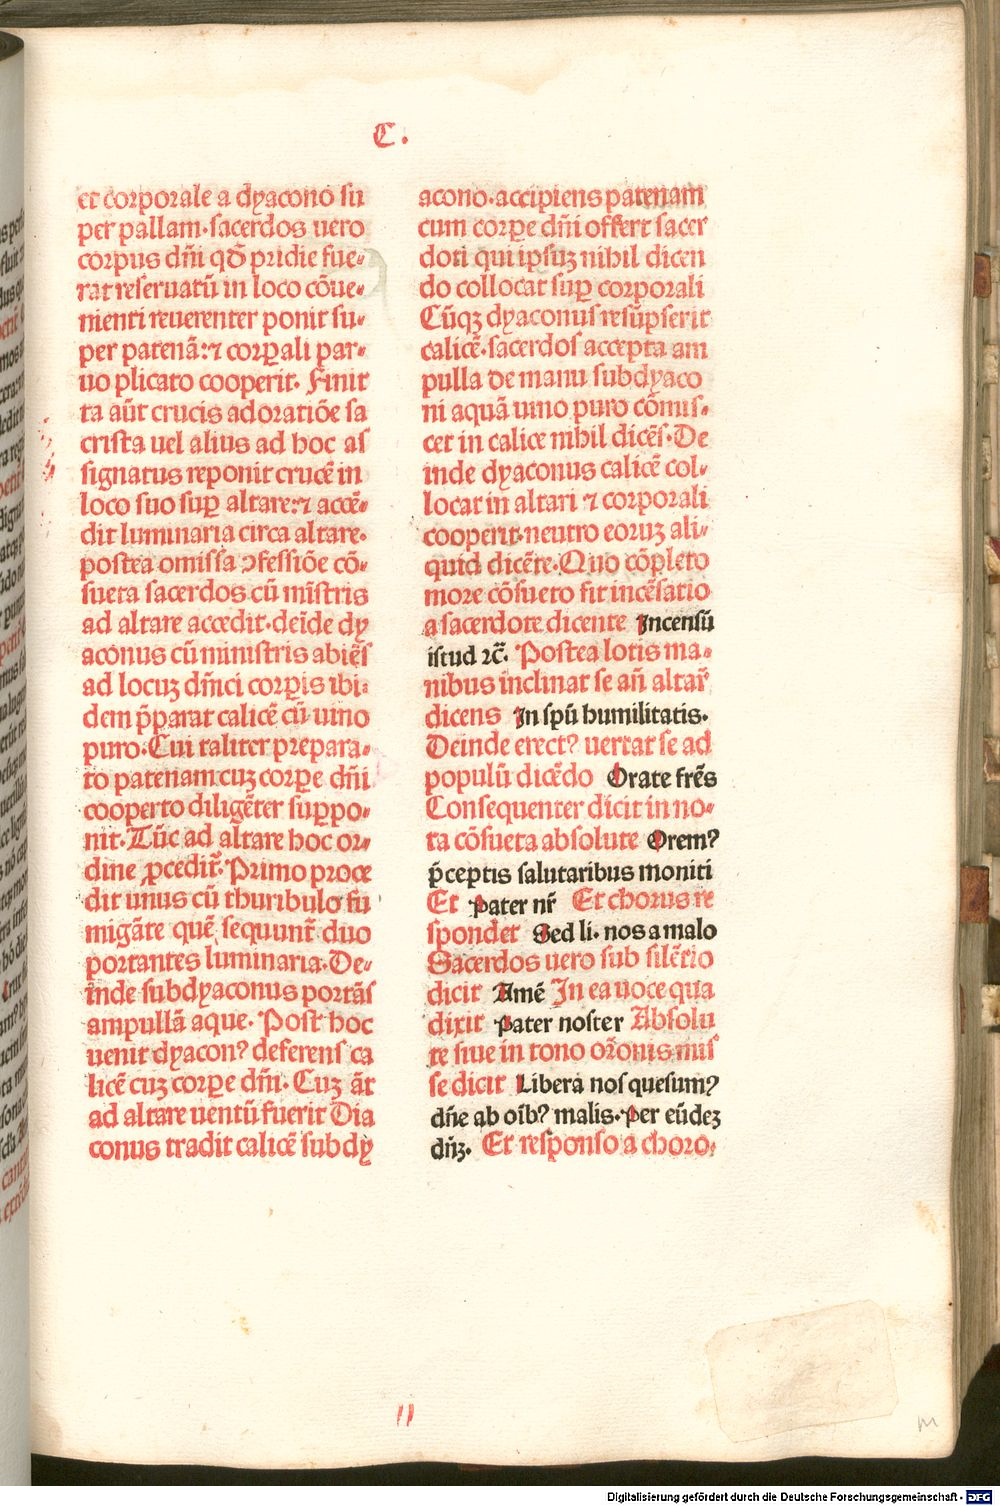 C.
et corporale a dyacono su
per pallam. sacerdos uero
corpus dñi qđ pridie fue⸗
rat reseruatū in loco cōue⸗
nienti reuerenter ponit su⸗
per patenā: ⁊ corꝑali par⸗
uo plicato cooperit. Finit
ta aūt crucis adoratiōe sa
crista uel alius ad hoc as
signatus reponit crucē in
loco suo suꝑ altare: ⁊ accē⸗
dit luminaria circa altare.
postea omissa ↄfessiōe cō⸗
sueta sacerdos cū mīstris
ad altare accedit. deīde dy
aconus cū ministris abiēs
ad locuꝫ dñici corꝑis ibi⸗
dem p̄parat calicē cū uino
puro. Cui taliter prepara⸗
to patenam cuꝫ corꝑe dñi
cooperto diligēter suꝑpo⸗
nit. Tūc ad altare hoc or⸗
dine ꝓcedit̃. Primo proce
dit unus cū thuribulo fu
migāte quē sequunt̃ duo
portantes luminaria. De⸗
inde subdyaconus portās
ampullā aque. Post hoc
uenit dyacon⁹ deferens ca
licē cuꝫ corꝑe dñi. Cuꝫ āt
ad altare uentū fuerit Dia
conus tradit calicē subdy
acono. accipiens patenam
cum corꝑe dñi offert sacer
doti qui ipsuꝫ nihil dicen
do collocat suꝑ corporali
Cūqꝫ dyaconus resūpserit
calicē. sacerdos accepta am
pulla de manu subdyaco
ni aquā uino puro cōmis⸗
cet in calice nihil dicēs. De
inde dyaconus calicē col⸗
locat in altari ⁊ corporali
cooperit. neutro eoruꝫ ali⸗
quid dicēte. Quo cōpleto
more cōsueto fit incēsatio
a sacerdote dicente Incensū
istud ⁊c̃. Postea lotis ma⸗
nibus inclinat se añ altar̃
dicens In spū humilitatis.
Deinde erect⁹ uertat se ad
populū dicēdo Orate frēs
Consequenter dicit in no⸗
ta cōsueta absolute Orem⁹
p̄ceptis salutaribus moniti
Et Pater nr̃ Et chorus re
spondet Sed li. nos a malo
Sacerdos uero sub silētio
dicit Amē In ea uoce qua
dixit Pater noster Absolu
te siue in tono or̃onis mis
se dicit Libera nos quesum⁹
dñe ab oīb⁹ malis. Per eūdeꝫ
dñꝫ. Et responso a choro.
11
M
Digitalisierung gefördert durch die Deutsche Forschungsgemeinschaft - DFG